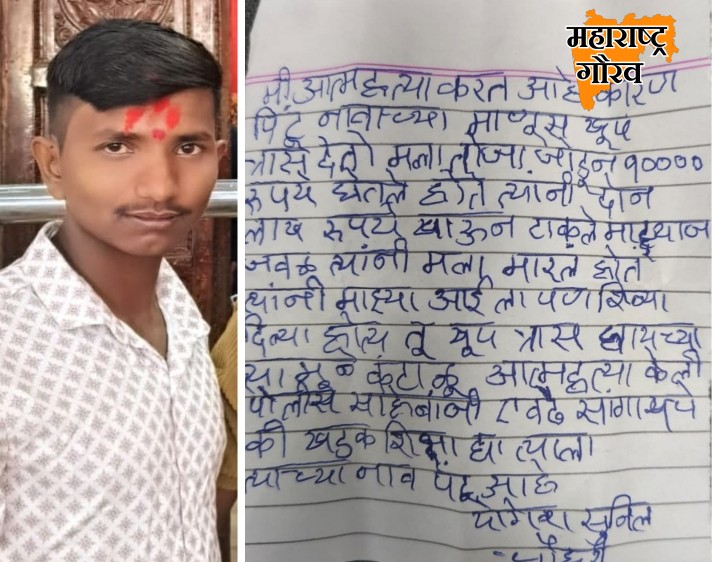 महाराष्ट्र
गौरव
मी आत्महत्या करत आहे कारण
पिंटू नावाच्या माणूस खूप
त्रास देतो मला त्यांच्या कडून १००००
रुपये घेतले होते त्यांनी दोन
लाख रुपये खाऊन टाकले माझ्या
जवळ त्यांनी मला मारल होत
त्यांनी माझ्या आई ला पण शिव्या
दिल्या होत्य तू खूप त्रास द्यायच्या
आत्महत्या केली
पोलीस साहेबांनी एवढे
की खडक शिक्षा द्या त्याला
त्याच्या नाव आहे
योगेश सुनिल